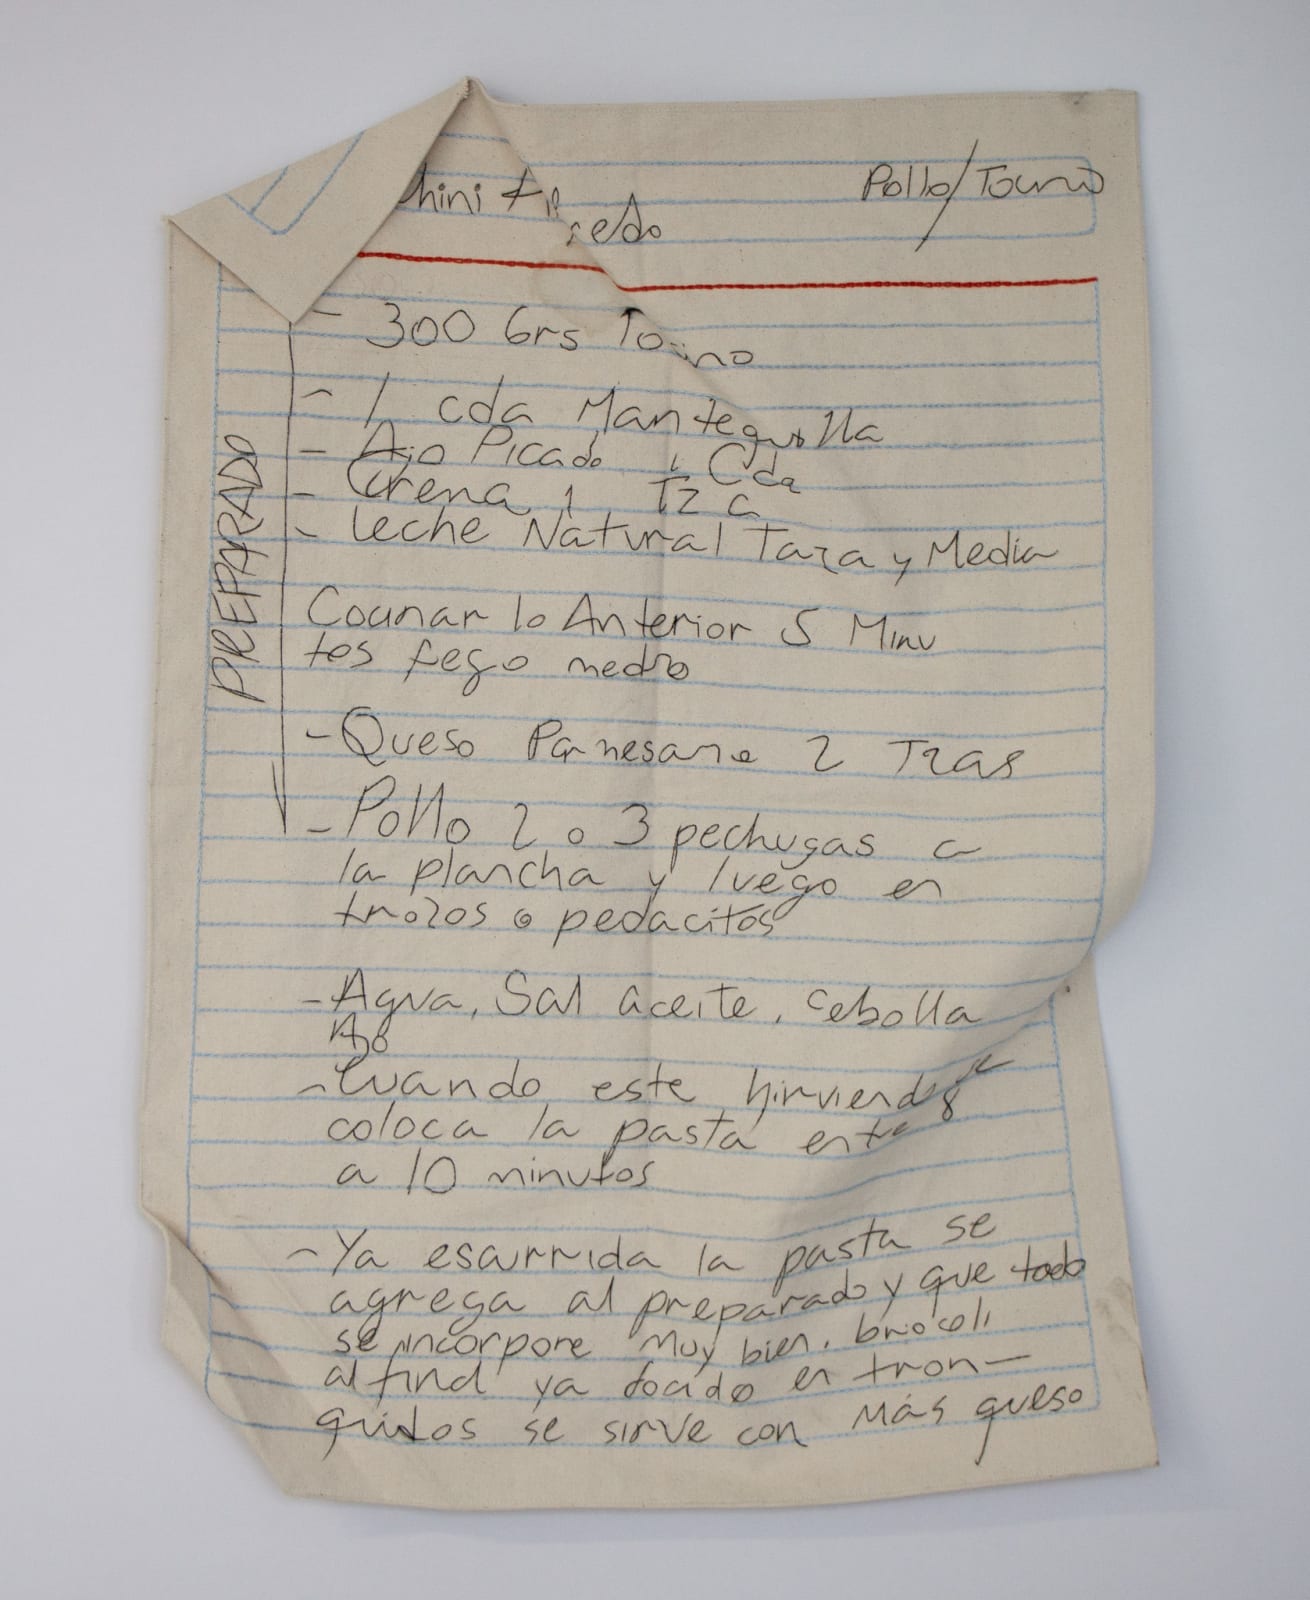 hini Al
redo
Pollo/Tocino
- 300 Grs Tocino
- 1 cda Mantequilla
- Ajo Picado 1 Cda
- Crema 1 Tza
- Leche Natural Taza y Media
PREPARADO
Cocinar lo Anterior 5 Minu
tos fego medio
- Queso Parmesano 2 Tzas
- Pollo 2 o 3 pechugas a
la plancha y luego en
trozos o pedacitos
- Agua, Sal aceite, cebolla
Ajo
- Cuando este hirviendo se
coloca la pasta entre 8
a 10 minutos
- Ya escurrida la pasta se
agrega al preparado y que todo
se incorpore muy bien. brocoli
al final ya cocido en tron-
quitos se sirve con más queso